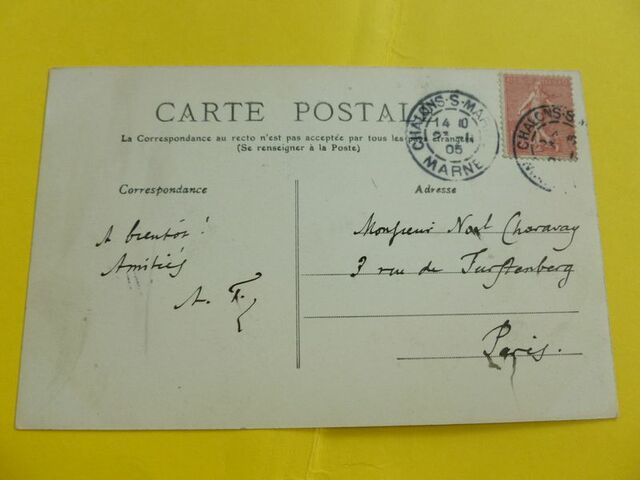 CARTE POSTAL
La Correspondance au recto n'est pas acceptée par tous les pays étrangers
(Se renseigner à la Poste)
CHALONS-S-MA
14 10
23
05
MARNE
CHALONS-S-M
Correspondance
Adresse
A bientôt!
Amitiés
A. F.
Monsieur Noël Charavay
3 rue de Furstenberg
Paris.